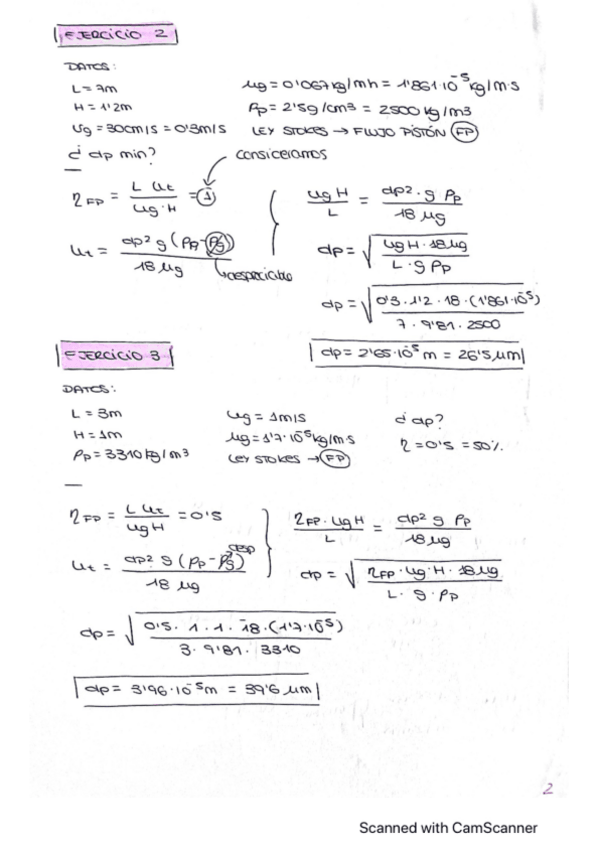 EJERCICIO 2
DATOS:
L = 7m
H = 1'2m
ug = 30cm/s = 0'3m/s
¿ dp min?
μg = 0'067kg/mh = 1'861·10⁻⁵kg/m·s
ρp = 2'5g/cm3 = 2500kg/m3
LEY STOKES → FLUJO PISTÓN (FP)
consideramos
η FP = L ut / ug·H = 1
ut = dp² g (ρp - ρg) / 18 μg
despreciable
ug H / L = dp²· g ρp / 18 μg
dp = √(ug H · 18 μg / L · g ρp)
dp = √(0'3 · 1'2 · 18 · (1'861·10⁻⁵) / 7 · 9'81 · 2500)
dp = 2'65·10⁻⁵m = 26'5 μm
EJERCICIO 3
DATOS:
L = 3m
H = 1m
ρp = 3310kg/m3
ug = 1m/s
μg = 1'7·10⁻⁵kg/m·s
LEY STOKES → (FP)
¿ dp?
η = 0'5 = 50%
η FP = L ut / ug H = 0'5
ut = dp² g (ρp - ρg) / 18 μg
desp
η FP · ug H / L = dp² g ρp / 18 μg
dp = √(η FP · ug · H · 18 μg / L · g · ρp)
dp = √(0'5 · 1 · 1 · 18 · (1'7·10⁻⁵) / 3 · 9'81 · 3310)
dp = 3'96·10⁻⁵m = 39'6 μm
2
Scanned with CamScanner